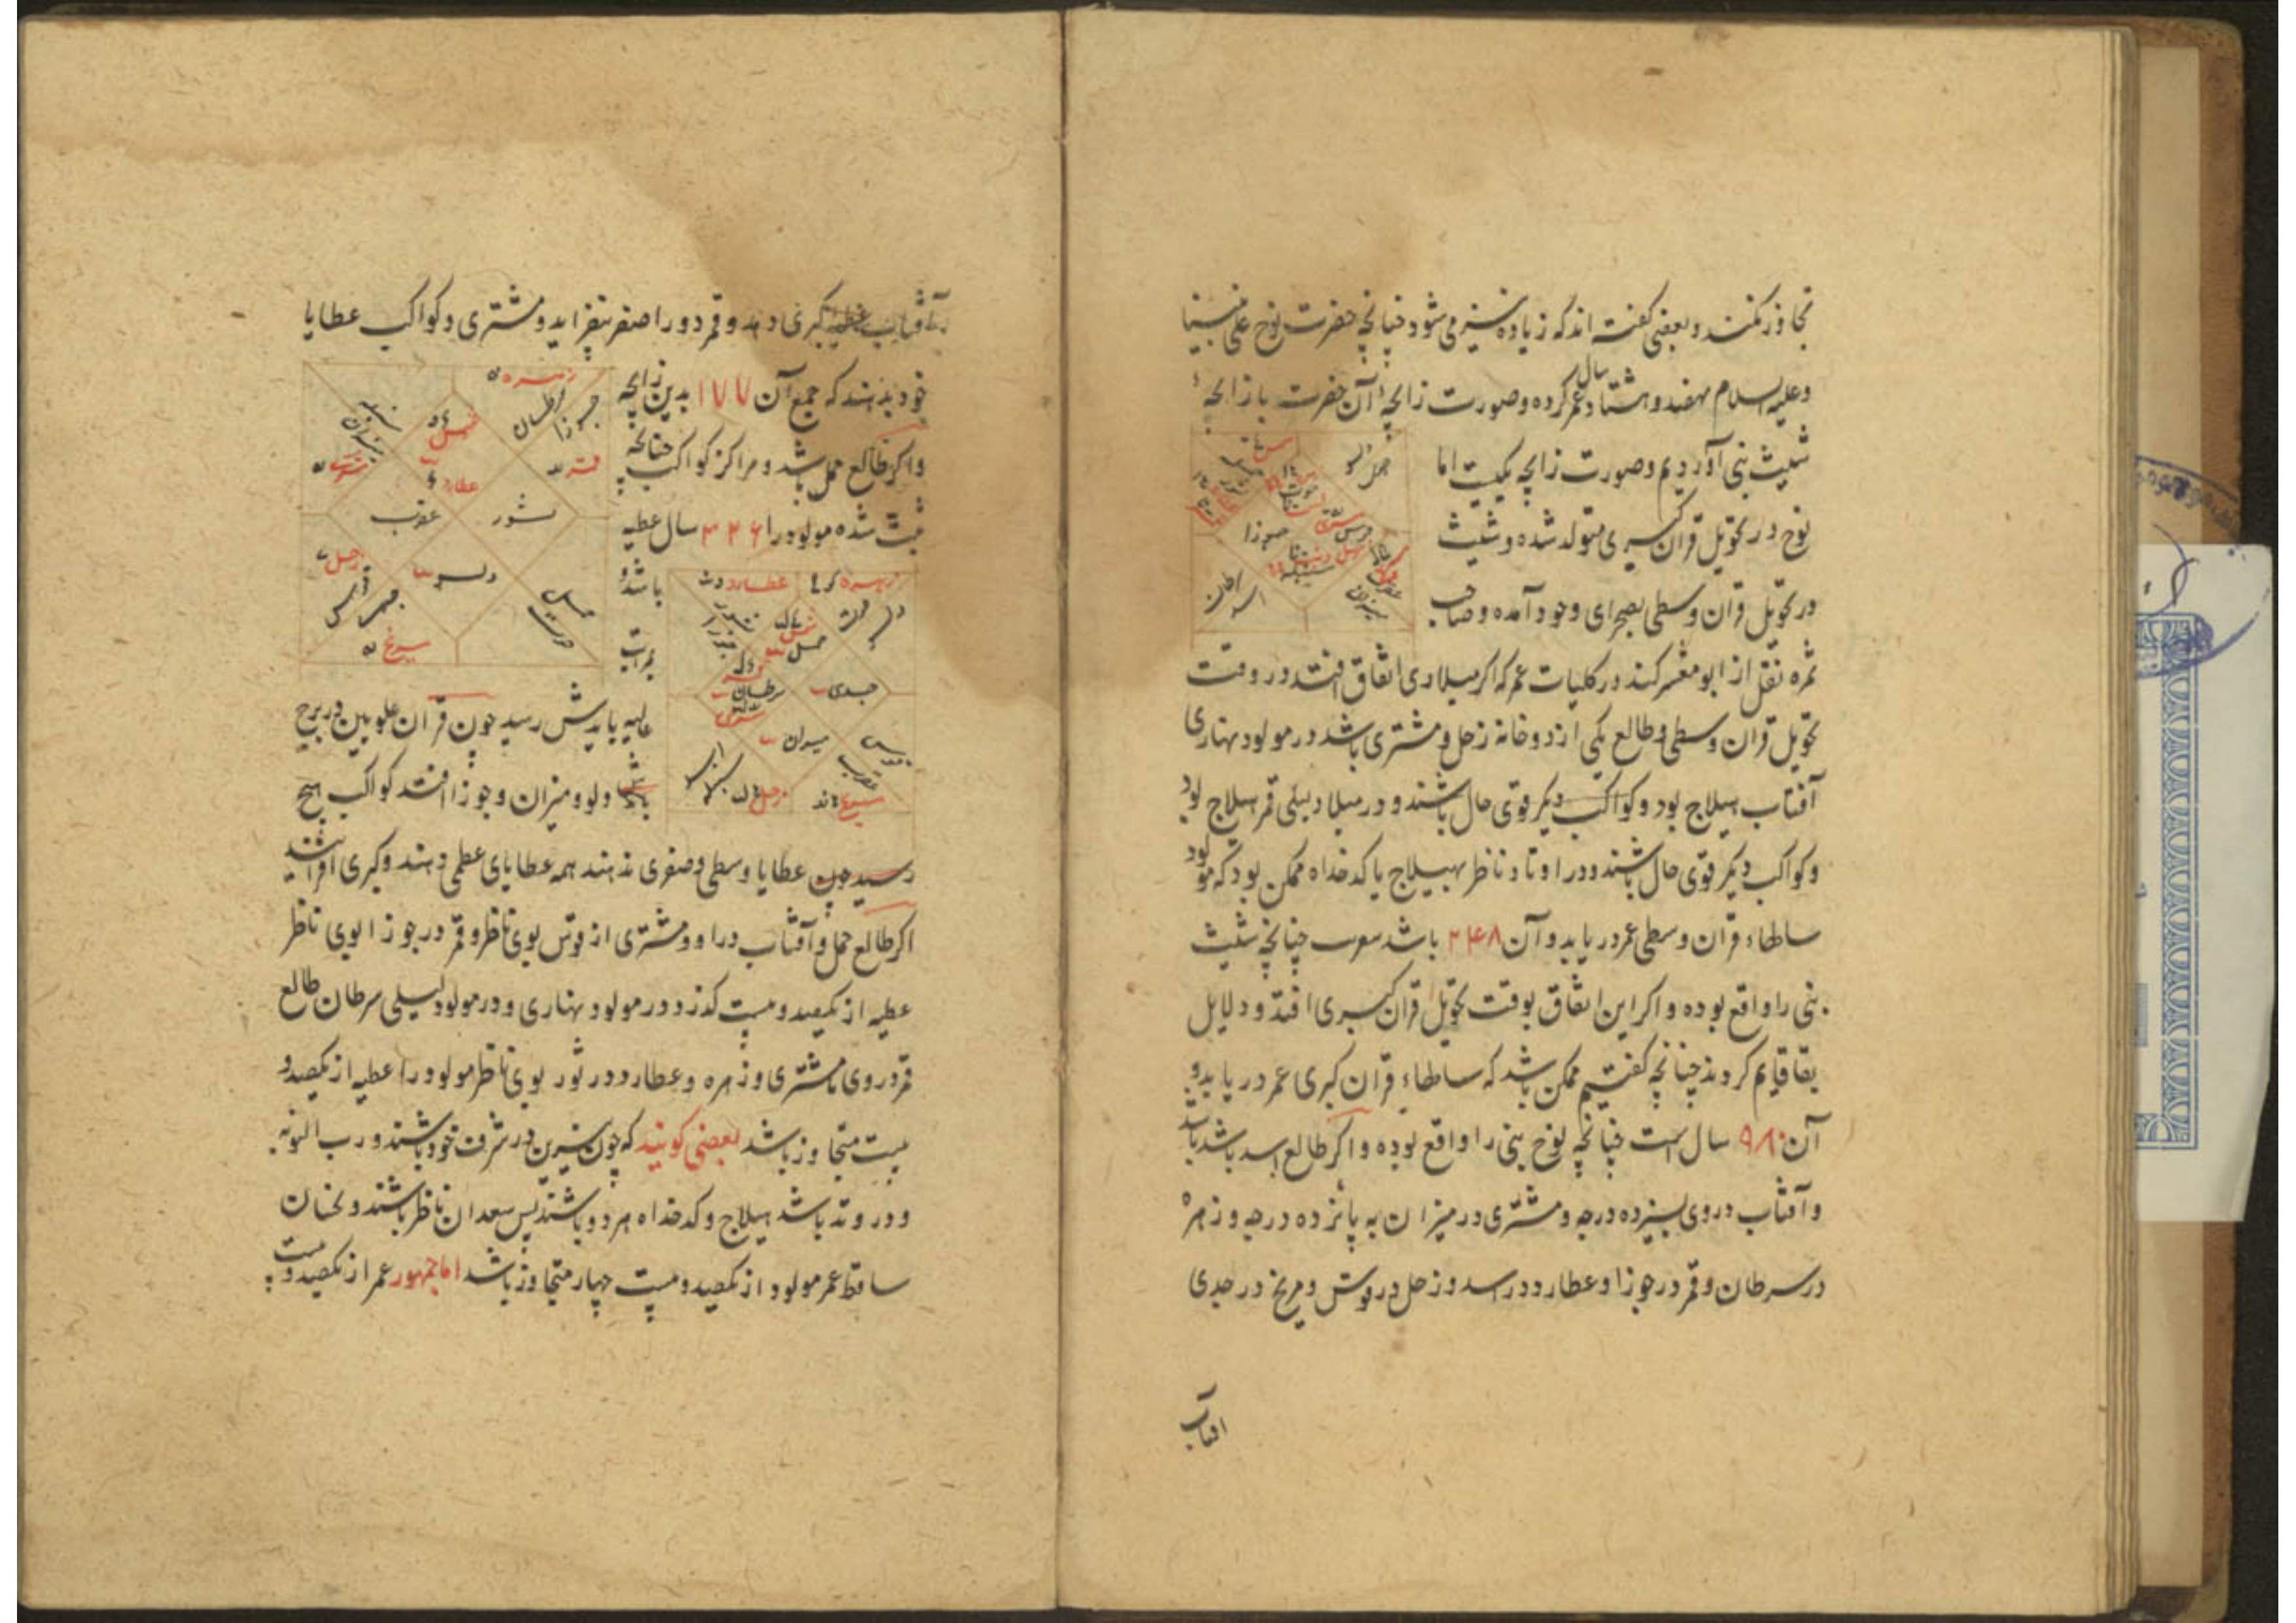 تجاوز نکنند و بعضی گفته اند که زیاده نیز می شود چنانچه حضرت نوح علی نبینا
وعلیه السلام نهصد و هشتاد سال عمر کرده و صورت زایچه آن حضرت با زایچه
شیث نبی آوردیم و صورت زایچه یکیست اما
نوح در تحویل قران کبری متولد شده و شیث
در تحویل قران وسطی بصحرای وجود آمده و صاحب
ثمره نقل از ابو معشر کند در کلیات عمر که اگر میلادی اتفاق افتد در وقت
تحویل قران وسطی و طالع یکی از دو خانه زحل و مشتری باشد در مولود نهاری
آفتاب هیلاج بود و کواکب دیگر قوی حال باشند و در میلاد لیلی قمر هیلاج بود
و کواکب دیگر قوی حال باشند و در اوتاد و ناظر بهیلاج یا کدخداه ممکن بود که مولود
سالهاء قران وسطی عمر در یابد و آن ۲۴۸ باشد چنانچه شیث
نبی را واقع بوده و اگر این اتفاق بوقت تحویل قران کبری افتد و دلایل
بقا قایم کردند چنانچه گفتیم ممکن باشد که سالهاء قران کبری عمر در یابد و
آن ۹۸۰ سال است چنانچه نوح نبی را واقع بوده و اگر طالع اسد باشد
و آفتاب در وی بسیزده درجه و مشتری در میزان به پانزده درجه و زهره
در سرطان و قمر در جوزا و عطارد در اسد و زحل در قوس و مریخ در جدی
افتاب
حمل
جوزا
سنبله
میزان
آفتاب عطیه کبری دهد و قمر دور اصغر بیفزاید و مشتری و کواکب عطایا
خود بدهند که جمع آن ۱۷۷ بدین زایچه
و اگر طالع حمل باشد و مراکز کواکب چنانچه
ثبت شده مولود را ۳۲۶ سال عطیه
باشد و
بمراتب
عالیه بایدش رسید چون قران علویین در برج
دلو و میزان و جوزا افتد کواکب هیچ
رسید چون عطایا وسطی و صغری ندهند همه عطایای عظمی دهند و کبری
اگر طالع حمل و آفتاب در او و مشتری از قوس بوی ناظر و قمر در جوزا بوی ناظر
عطیه از یکصد و بیست گذرد در مولود نهاری و در مولود لیلی سرطان طالع
قمر در وی با مشتری و زهره و عطارد در ثور بوی ناظر مولود را عطیه از یکصد و
بیست متجاوز باشد بعضی گویند که چون نیرین در شرف خود باشند و رب النوبه
و در وتد باشد هیلاج و کدخداه هر دو باشند پس سعدان ناظر باشند و نحسان
ساقط عمر مولود از یکصد و بیست چهار متجاوز باشد اما جمهور عمر از یکصد و بیست
زهره
سرطان
جوزا
شمس
عطارد
قمر
ثور
عقرب
دلو
زحل
قوس
مریخ
حمل
زهره
عطارد
ثور
جوزا
شمس
حمل
جدی
سرطان
مشتری
میزان
قوس
عقرب
اسد
سنبله
زحل
مریخ